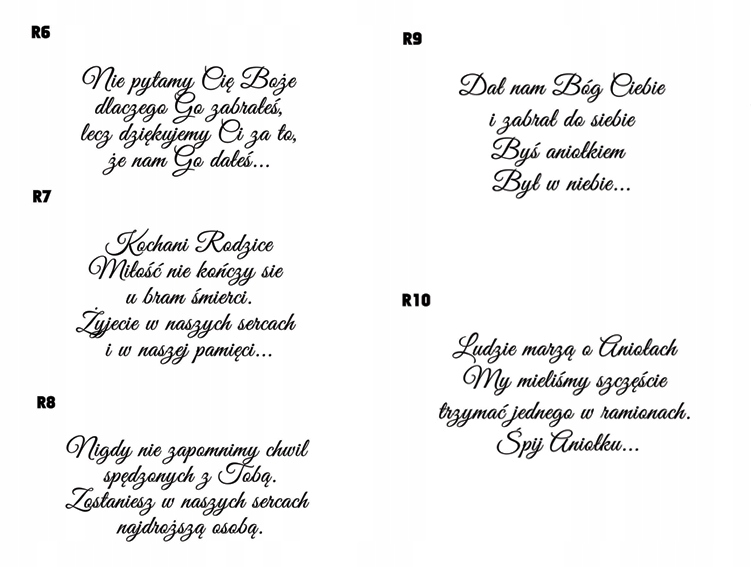 R6
Nie pytamy Cię Boże
dlaczego Go zabrałeś,
lecz dziękujemy Ci za to,
że nam Go dałeś...
R7
Kochani Rodzice
Miłość nie kończy sie
u bram śmierci.
Żyjecie w naszych sercach
i w naszej pamięci...
R8
Nigdy nie zapomnimy chwil
spędzonych z Tobą.
Zostaniesz w naszych sercach
najdroższą osobą.
R9
Dał nam Bóg Ciebie
i zabrał do siebie
Byś aniołkiem
Był w niebie...
R10
Ludzie marzą o Aniołach
My mieliśmy szczęście
trzymać jednego w ramionach.
Śpij Aniołku...